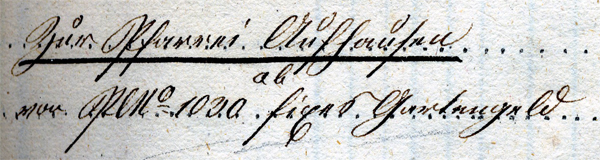 Zur Pfarrei Aufhausen
ab
von Pl№ 1020 fixes Gartengeld